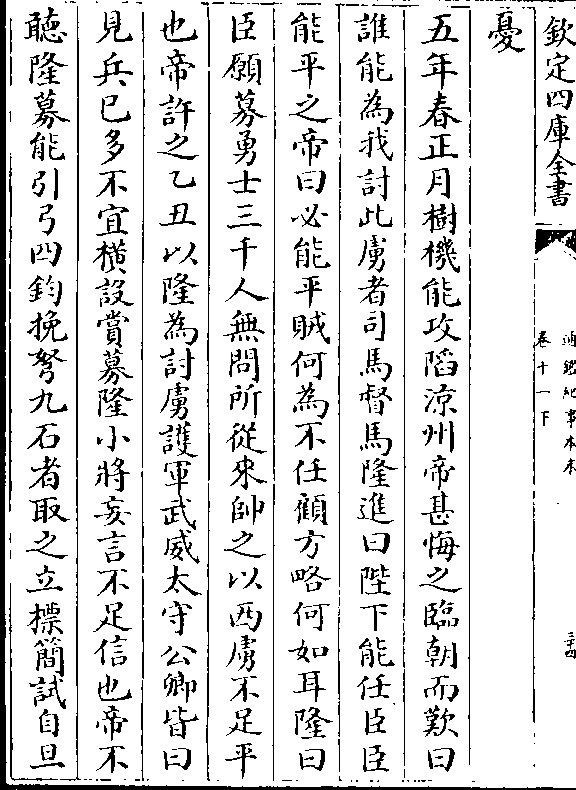 欽定四庫全書
通鑑紀事本末
卷十一下
三十四
憂
五年春正月樹機能攻陷涼州帝甚悔之臨朝而歎曰
誰能為我討此虜者司馬督馬隆進曰陛下能任臣臣
能平之帝曰必能平賊何為不任顧方略何如耳隆曰
臣願募勇士三千人無問所從來帥之以西虜不足平
也帝許之乙丑以隆為討虜護軍武威太守公卿皆曰
見兵已多不宜橫設賞募隆小將妄言不足信也帝不
聽隆募能引弓四鈞挽弩九石者取之立標簡試自旦